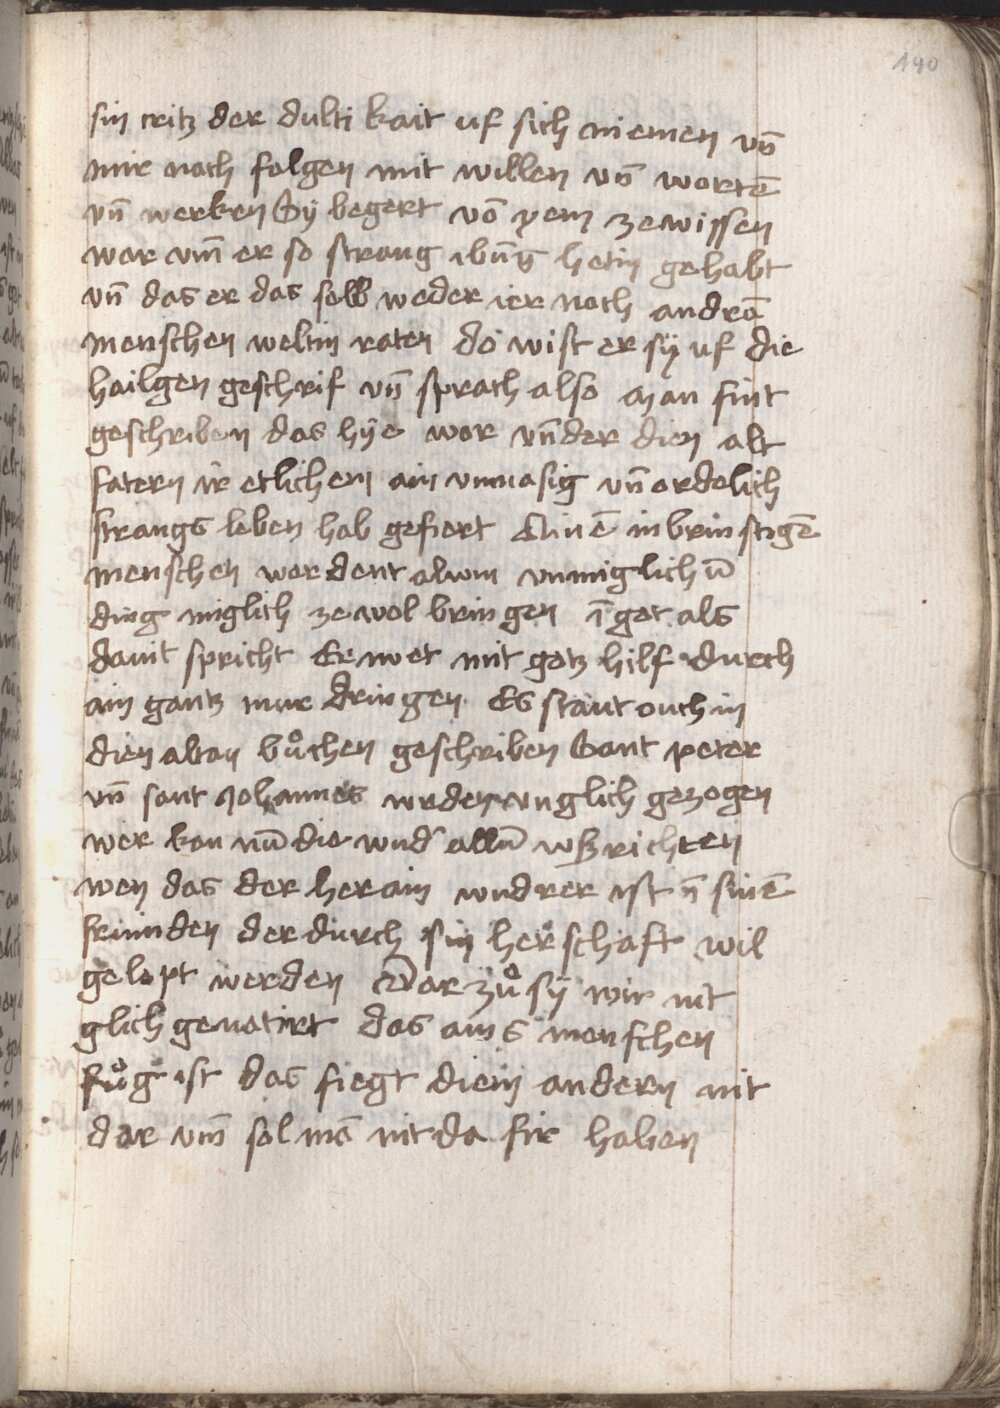 140
sin critz der dulti kait uf sich niemen vn̄
mir nach folgen mit willen vn̄ wortē
vn̄ werken Sÿ begert vō yem ze wissen
war vm̄ er so strang ibūg hetin gehabt
vn̄ das er das selb weder ier noch andrō
menschen weltin raten do wist er sÿ uf die
hailgen geschrif vn̄ sprach also man fint
geschriben das hÿe wor vn̄der dien alt
fatern ir etlichem ain vnmasig vn̄ ordelich
strangs leben hab gefiert Ainē inbrinstigē
menschen werdent alwin vnmiglich ū
ding miglich ze vol bringen ī got als
davit spricht Er wet mit gotz hilf durch
ain gantz mur dringen Es stant ouch in
dien altan bůchen geschriben Sant peter
vn̄ sant Johannes wrden vnglich gezogen
wer kan nū die wnd' allū vsrichten
wen das der her ain wndrer ist ī sinē
frinnden der durch sin her schaft wil
gelopt werden Dar zů sÿ wir nit
glich genatirt das ains menschen
fůg ist das fiegt diem andern nit
dar vm̄ sol mā nit da fir haben